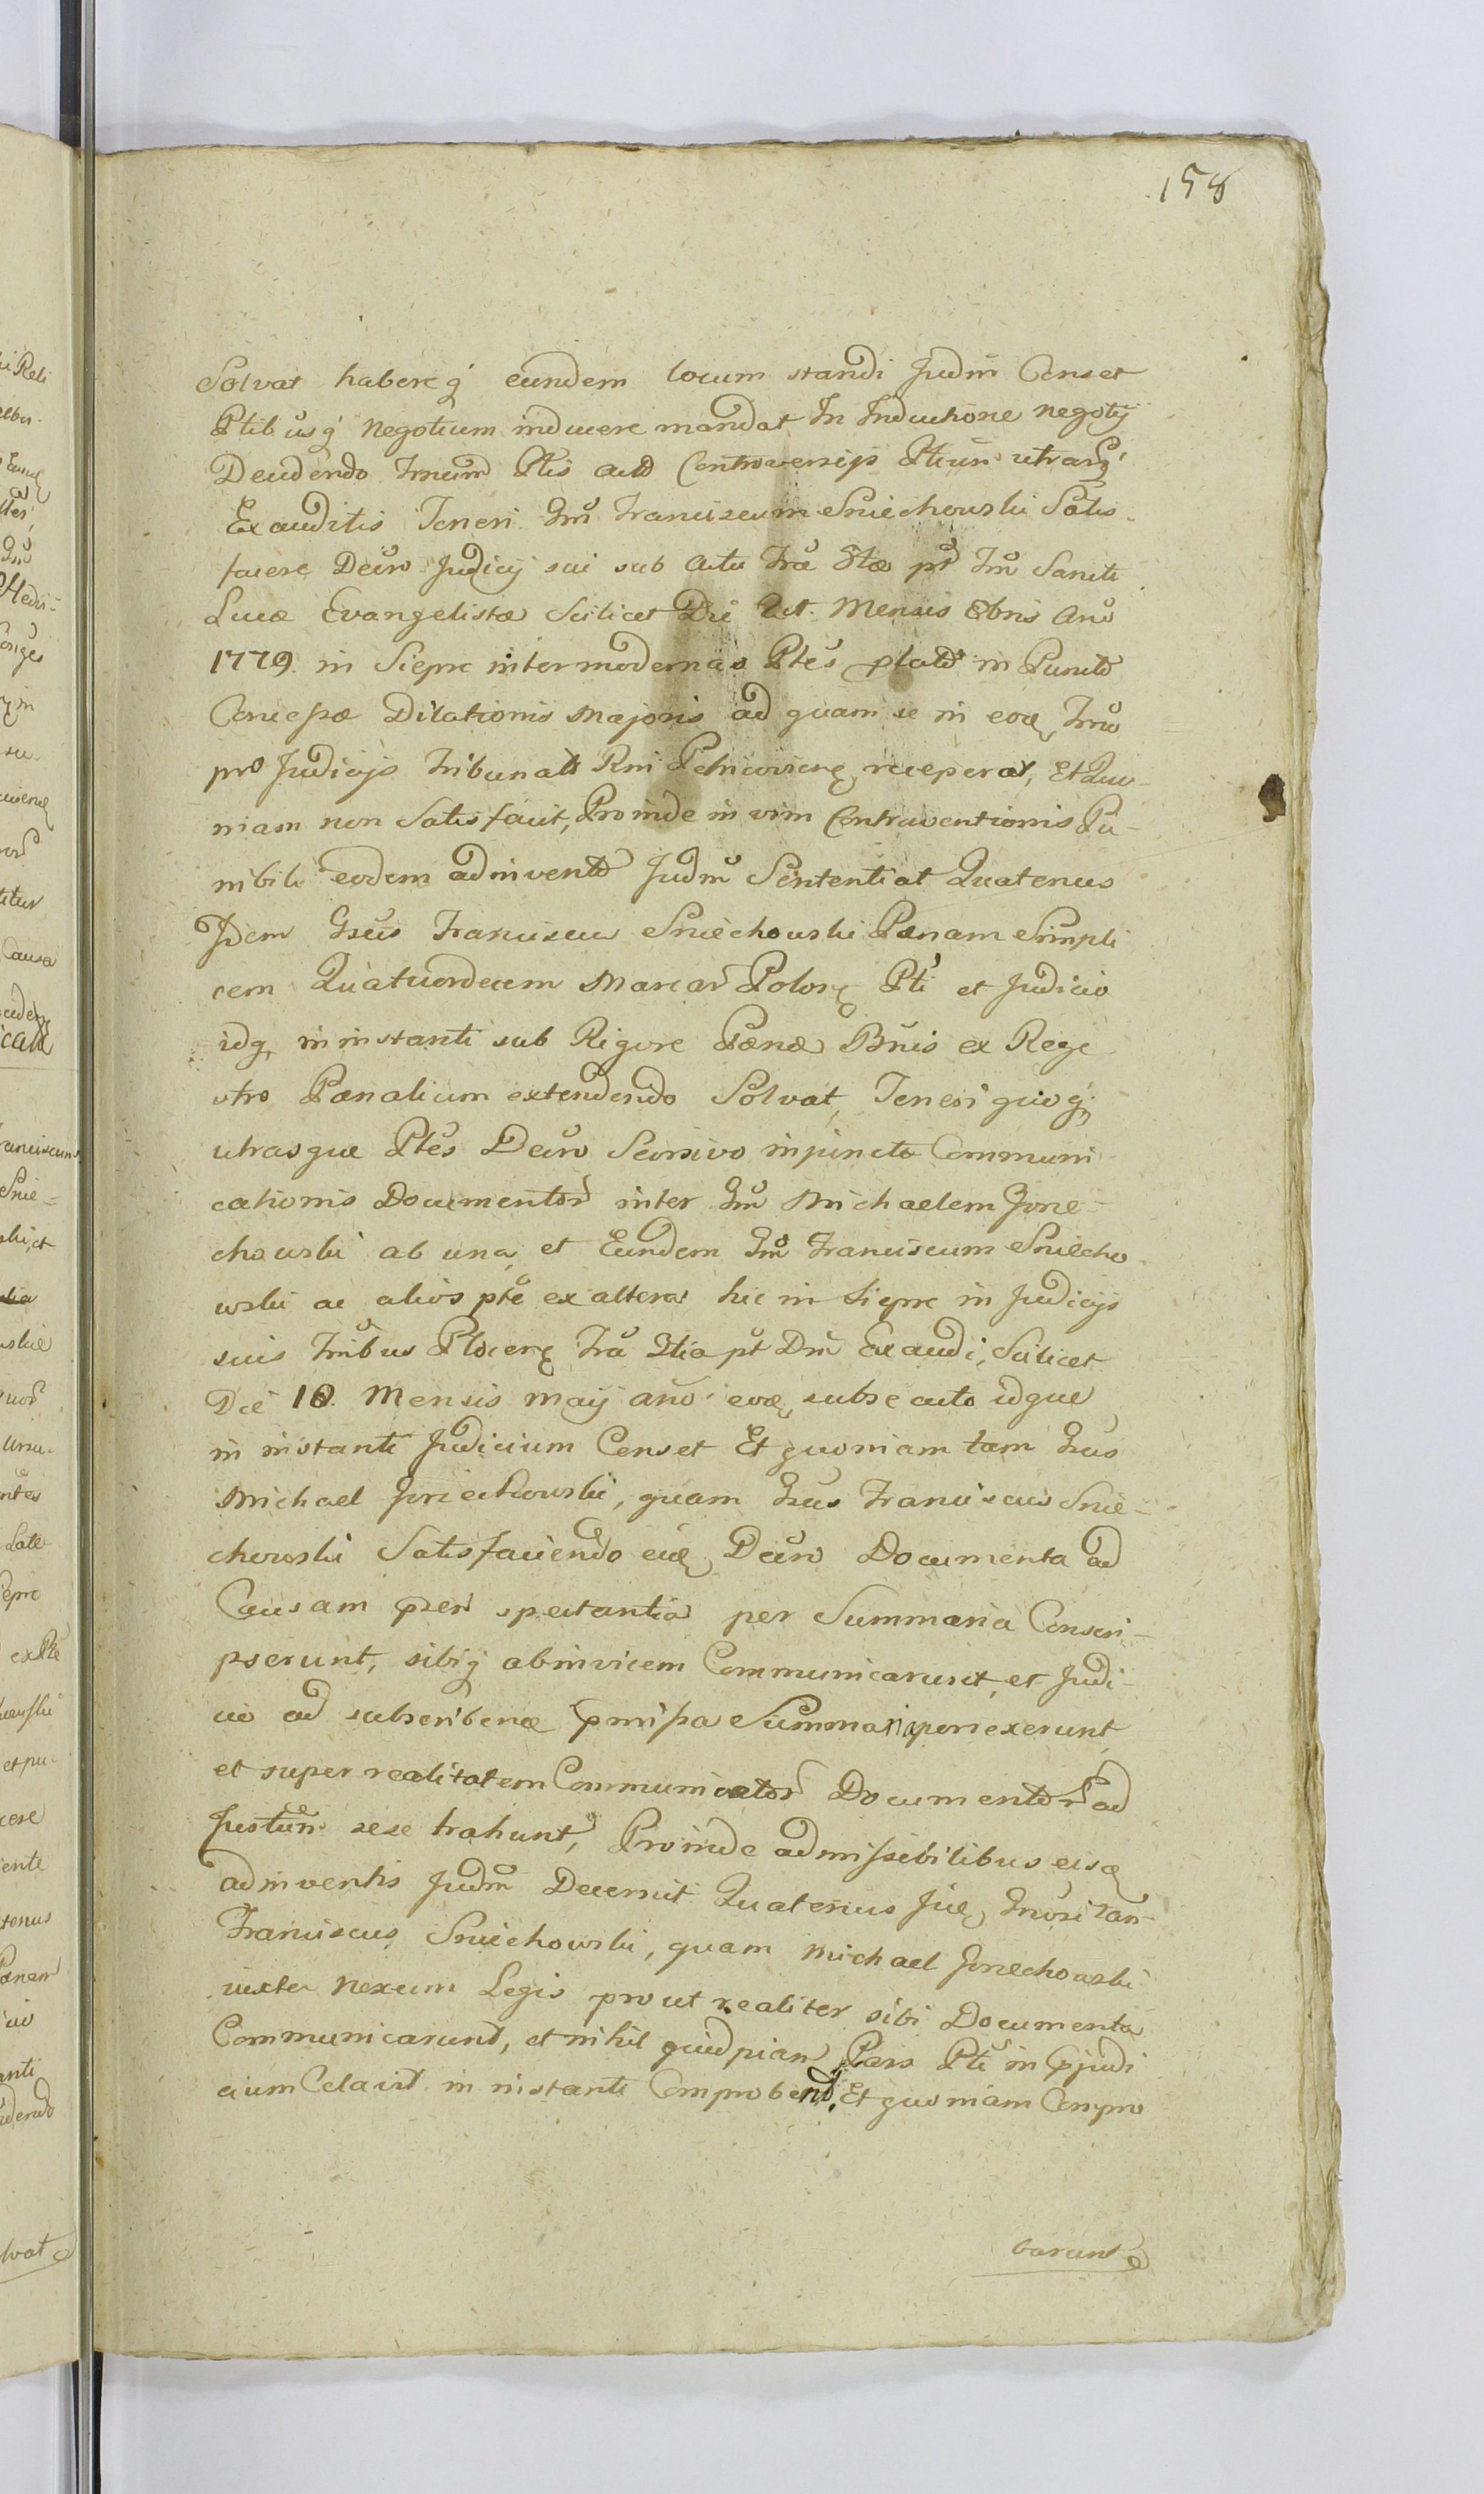 158
Solvat habereq́ eundem locum standi Judm̄ Censet
Ptibusq́ Negotium inducere mandat In Inductione negotÿ
Decidendo Trnum Ptis Controversijs Ptium utrarq́
Exauditis Teneri Gm̄ Franciscum Sniechowski Satis
facere Decro Judicij sui sub Actu Fra Stæ pt Fm̄ Sancti
Lucæ Evangelistæ Scilicet Die Mensis 8bris Ano
1779. in Siepre inter modernas Ptes plato in Puncto
Concessæ Dilationis Majoris ad quam se in eoq Trno
pro Judicijs Tribunalis Rni Petricovien receperat, Et Quo-
niam non Satisfacit, Proinde in vim Contraventionis Pu-
nibili eodem adinvento Judm̄ Sententiat Quatenus
Idem Gsus Franciscus Sniechowski Pænam Simpli
cem Quatuordecem Marcar Polon Pti et Judicio
idq in instanti sub Rigore Pænæ Bnis ex Regi
stro Pænalium extendendo Solvat, Teneri quoq́
utrasque Ptes Decro Seorsivo in puncto Communi
cationis Documentor inter Gm̄ Michaelem Jorie-
chowski ab una, et Eundem Gm̄ Franciscum Sniecho
wski ac alios pte ex altera hic in Siepre in Judicijs
suis Tribus Plocen Fra 2tia pt Dm̄ Exaudi, Scilicet
Die 10. Mensis Maij ano eoq subsecuto idque
in instanti Judicium Censet Et quoniam tam Gsus
Michael Joriechowski, quam Gsus Franciscus Snie-
chowski Satisfaciendo Decro Documenta ad
Causam spectantia per Summaria Conscri-
pserunt, sibiq́ abinvicem Communicarunt, et Judi-
cio ad subscriben p̄missa Summaria porrexerunt,
et super realitatem Communicator Documentor ad
sese trahunt, Proinde admissibilibus eisq
adinventis Judm̄ Decernit Quatenus tam
Franciscus Sniechowski, quam Michael Joriechowski
iuxta Nexum Legis prout realiter sibi Documenta
Communicarunt, et nihil quidpiam Pars Pti in p̄judi
cium Celavit in instanti Comprobent, Et quoniam Compro
barunt